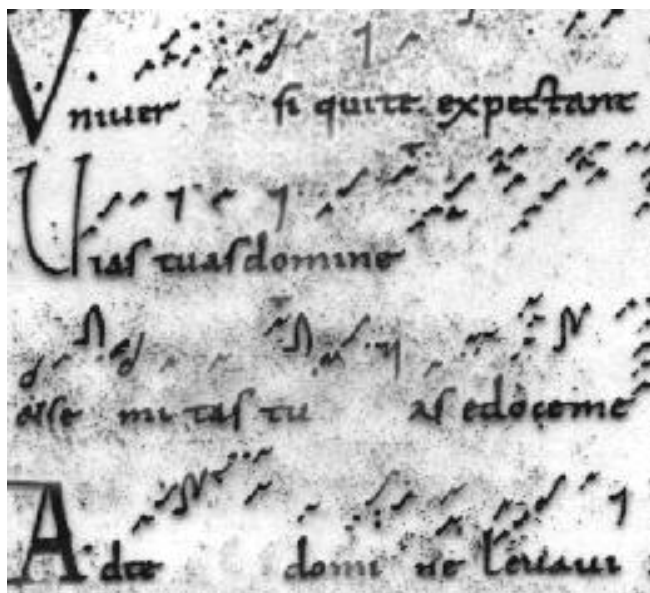 Vniuer si qui te expectant
Uias tuas domine
mi tas tu as edoceme
Ad te domi ne leuaui